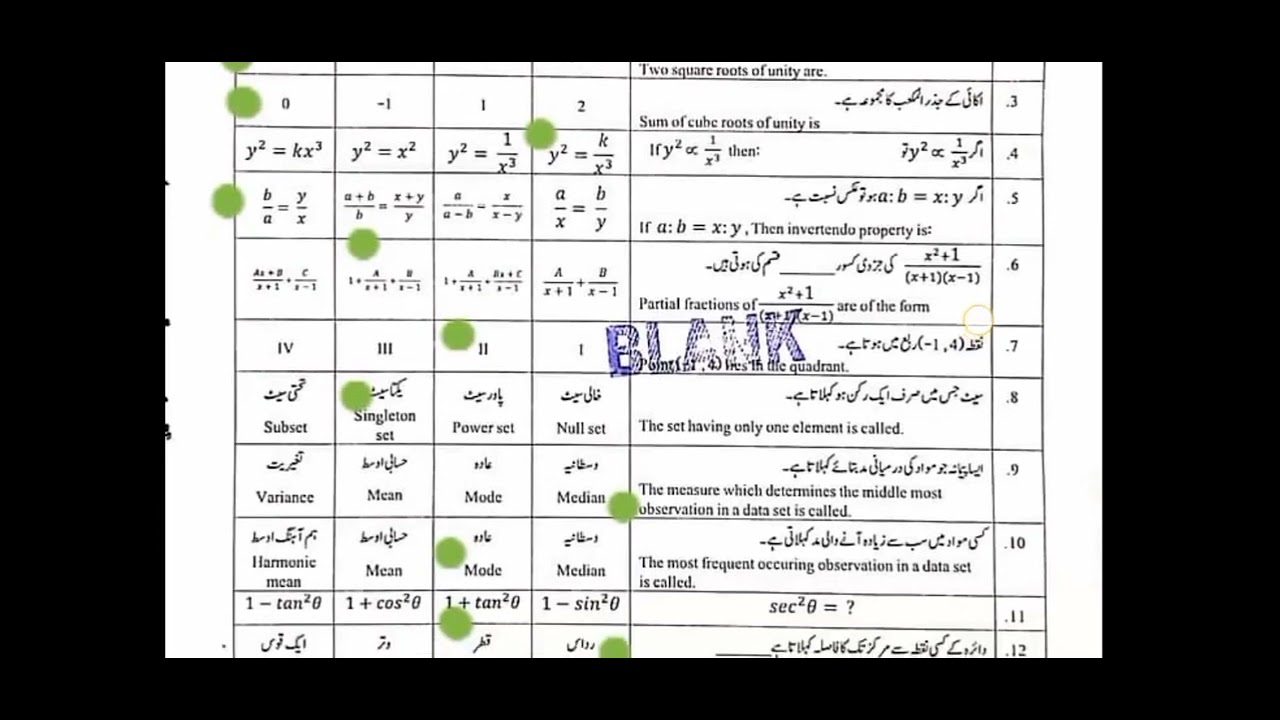 Two square roots of unity are.
0 -1 1 2 اکائی کے جذر المکعب کا مجموعہ ہے۔ .3
Sum of cube roots of unity is
y² = kx³ y² = x² y² = 1/x³ y² = k/x³ If y² ∝ 1/x³ then: اگر y² ∝ 1/x³ تو .4
b/a = y/x (a+b)/b = (x+y)/y a/(a−b) = x/(x−y) a/x = b/y اگر a:b = x:y ہو تو عکس نسبت ہے۔ .5
If a:b = x:y, Then invertendo property is:
(Ax+B)/(x+1) + C/(x−1) 1 + A/(x+1) + B/(x−1) 1 + A/(x+1) + (Bx+C)/(x−1) A/(x+1) + B/(x−1) (x²+1)/((x+1)(x−1)) کی جزوی کسور ______ قسم کی ہوتی ہیں۔ .6
Partial fractions of (x²+1)/((x+1)(x−1)) are of the form
IV III II I نقطہ (-1, 4) ربع میں ہوتا ہے۔ .7
BLANK
Point (-1, 4) lies in the quadrant.
تحتی سیٹ یکتا سیٹ پاور سیٹ خالی سیٹ سیٹ جس میں صرف ایک رکن ہو کہلاتا ہے۔ .8
Subset Singleton set Power set Null set The set having only one element is called.
تغیریت حسابی اوسط عادہ وسطانیہ ایسا پیمانہ جو مواد کی درمیانی مد بتائے کہلاتا ہے۔ .9
Variance Mean Mode Median The measure which determines the middle most
observation in a data set is called.
ہم آہنگ اوسط حسابی اوسط عادہ وسطانیہ کسی مواد میں سب سے زیادہ آنے والی مد کہلاتی ہے۔ .10
Harmonic mean Mean Mode Median The most frequent occuring observation in a data set
is called.
1 − tan²θ 1 + cos²θ 1 + tan²θ 1 − sin²θ sec²θ = ? .11
ایک قوس وتر قطر رداس دائرہ کے کسی نقطہ سے مرکز تک کا فاصلہ کہلاتا ہے ______ .12